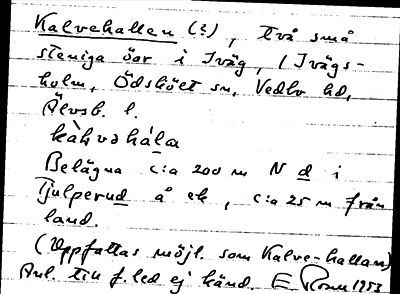 Kalvehallen (?), två små
steniga öar i Iväg, / Ivägs-
holm, Ödskölt sn, Vedbo hd,
Älvsb. l.
kàlvəhála
Belägna c:a 200 m N d i
Tjulperud å ek, c:a 25 m från
land.
(Uppfattas möjl. som Kalve-hallan)
Anl. till f. led ej känd. E 1953